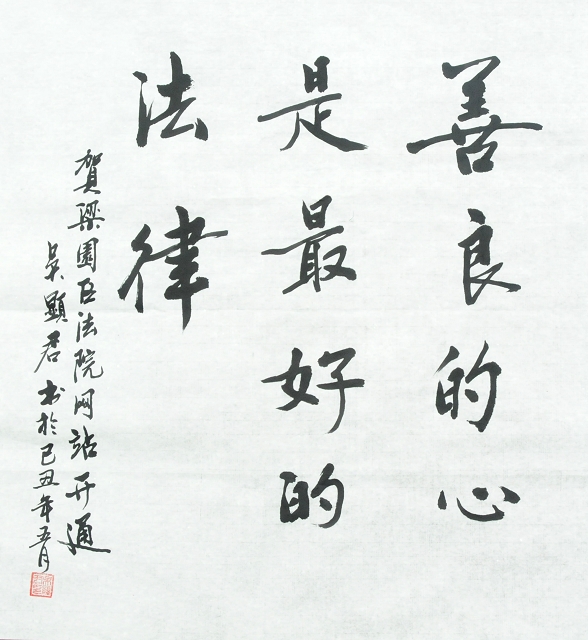 善良的心
是最好的
法律
贺梁園区法院网站开通
吴顯君书於己丑年五月